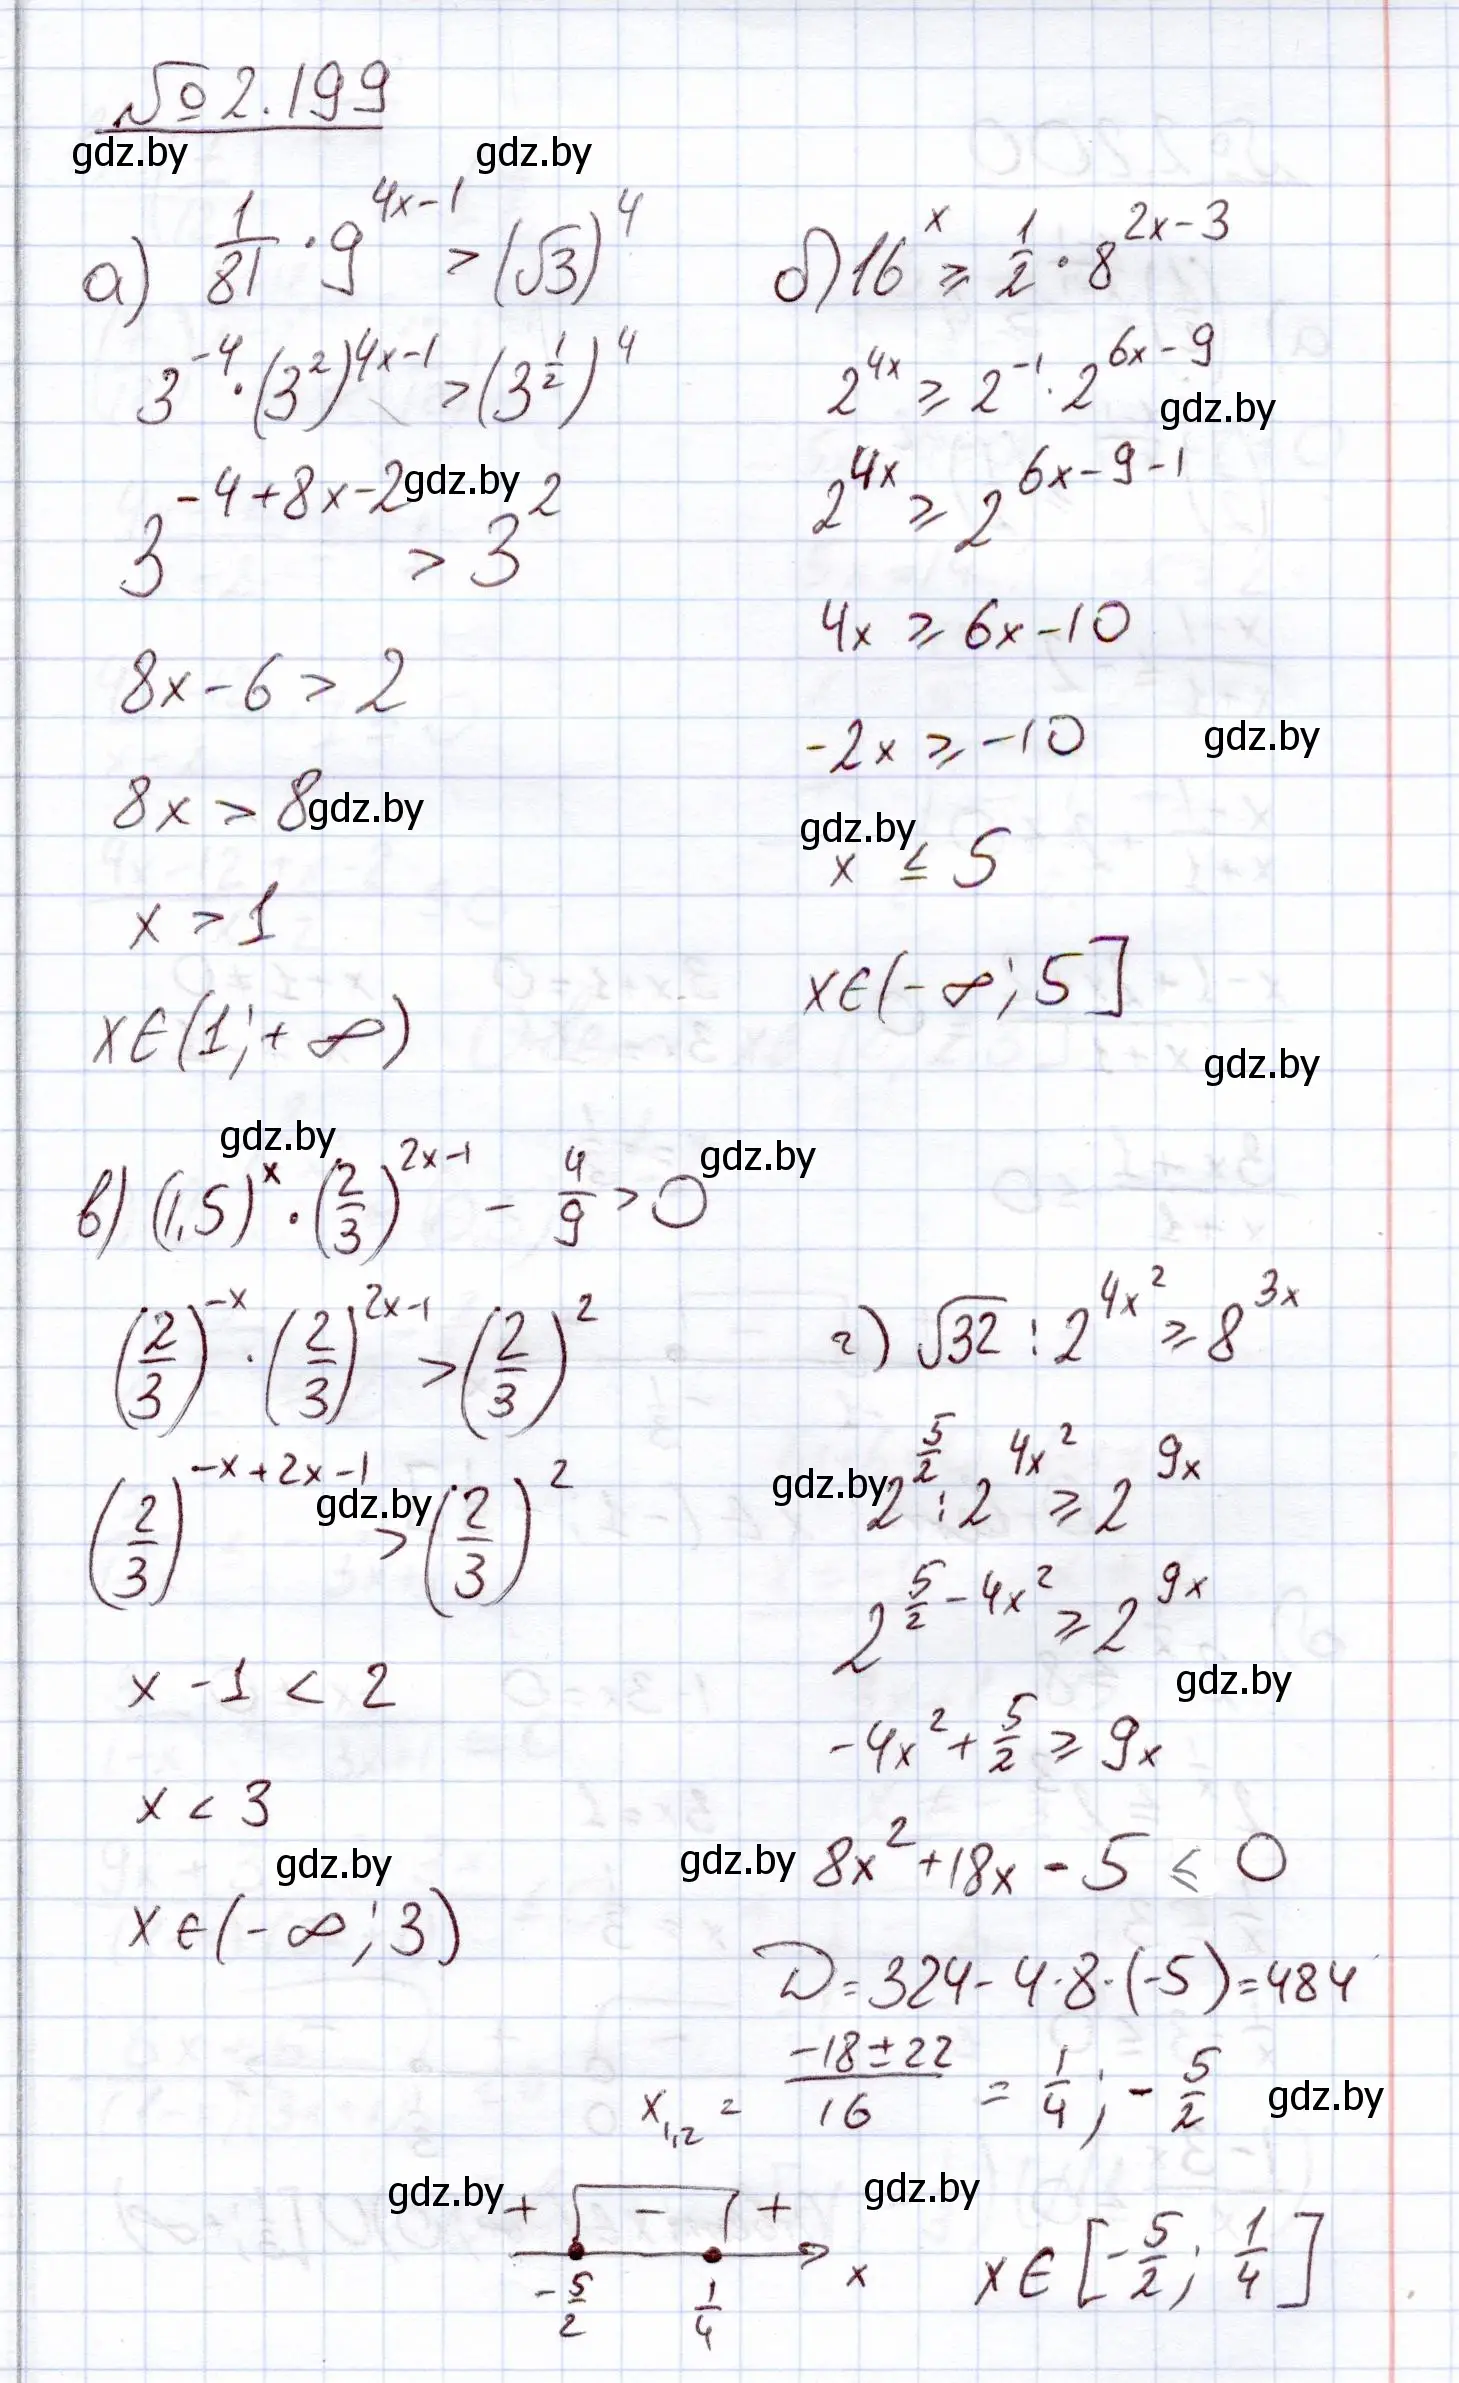 № 2.199
gdz.by gdz.by
а) 1/81 · 9^(4x-1) > (√3)^4
3^(-4) · (3^2)^(4x-1) > (3^(1/2))^4
gdz.by
3^(-4+8x-2) > 3^2
8x - 6 > 2
8x > 8
gdz.by
x > 1
x ∈ (1; + ∞)
б) 16^x ⩾ 1/2 · 8^(2x-3)
2^(4x) ⩾ 2^(-1) · 2^(6x-9)
gdz.by
2^(4x) ⩾ 2^(6x-9-1)
4x ⩾ 6x - 10
-2x ⩾ -10
gdz.by
gdz.by
x ≤ 5
x ∈ (- ∞; 5]
gdz.by
gdz.by gdz.by
в) (1,5)^x · (2/3)^(2x-1) - 4/9 > 0
(2/3)^(-x) · (2/3)^(2x-1) > (2/3)^2
gdz.by
(2/3)^(-x+2x-1) > (2/3)^2
x - 1 < 2
x < 3
gdz.by
x ∈ (- ∞; 3)
г) √32 : 2^(4x^2) ⩾ 8^(3x)
gdz.by
2^(5/2) : 2^(4x^2) ⩾ 2^(9x)
2^(5/2 - 4x^2) ⩾ 2^(9x)
gdz.by
-4x^2 + 5/2 ⩾ 9x
gdz.by
8x^2 + 18x - 5 ⩽ 0
D = 324 - 4·8·(-5) = 484
x_1,2 = (-18 ± 22)/16 = 1/4; - 5/2
gdz.by
gdz.by gdz.by
+ - +
x
-5/2 1/4
x ∈ [-5/2; 1/4]